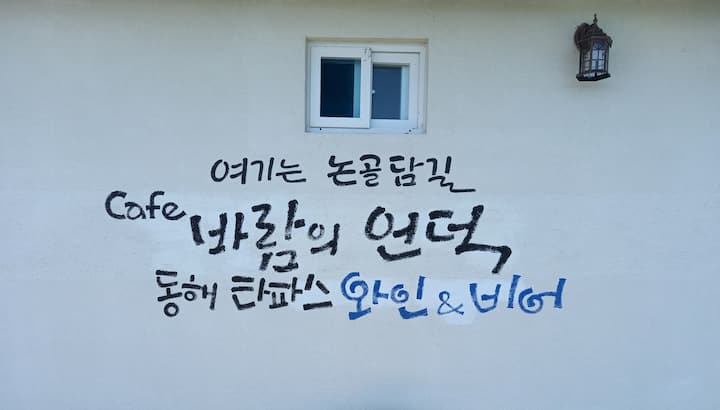 여기는 논골담길
Cafe 바람의 언덕
동해 타파스 와인 & 비어